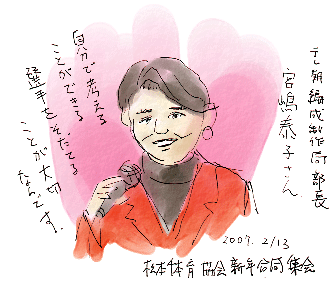 テレ朝編成制作局部長
宮嶋泰子さん
自分で考える
ことができる
選手をそだてる
ことが大切
なんです。
2007. 2/13
松本体育協会新年合同集会